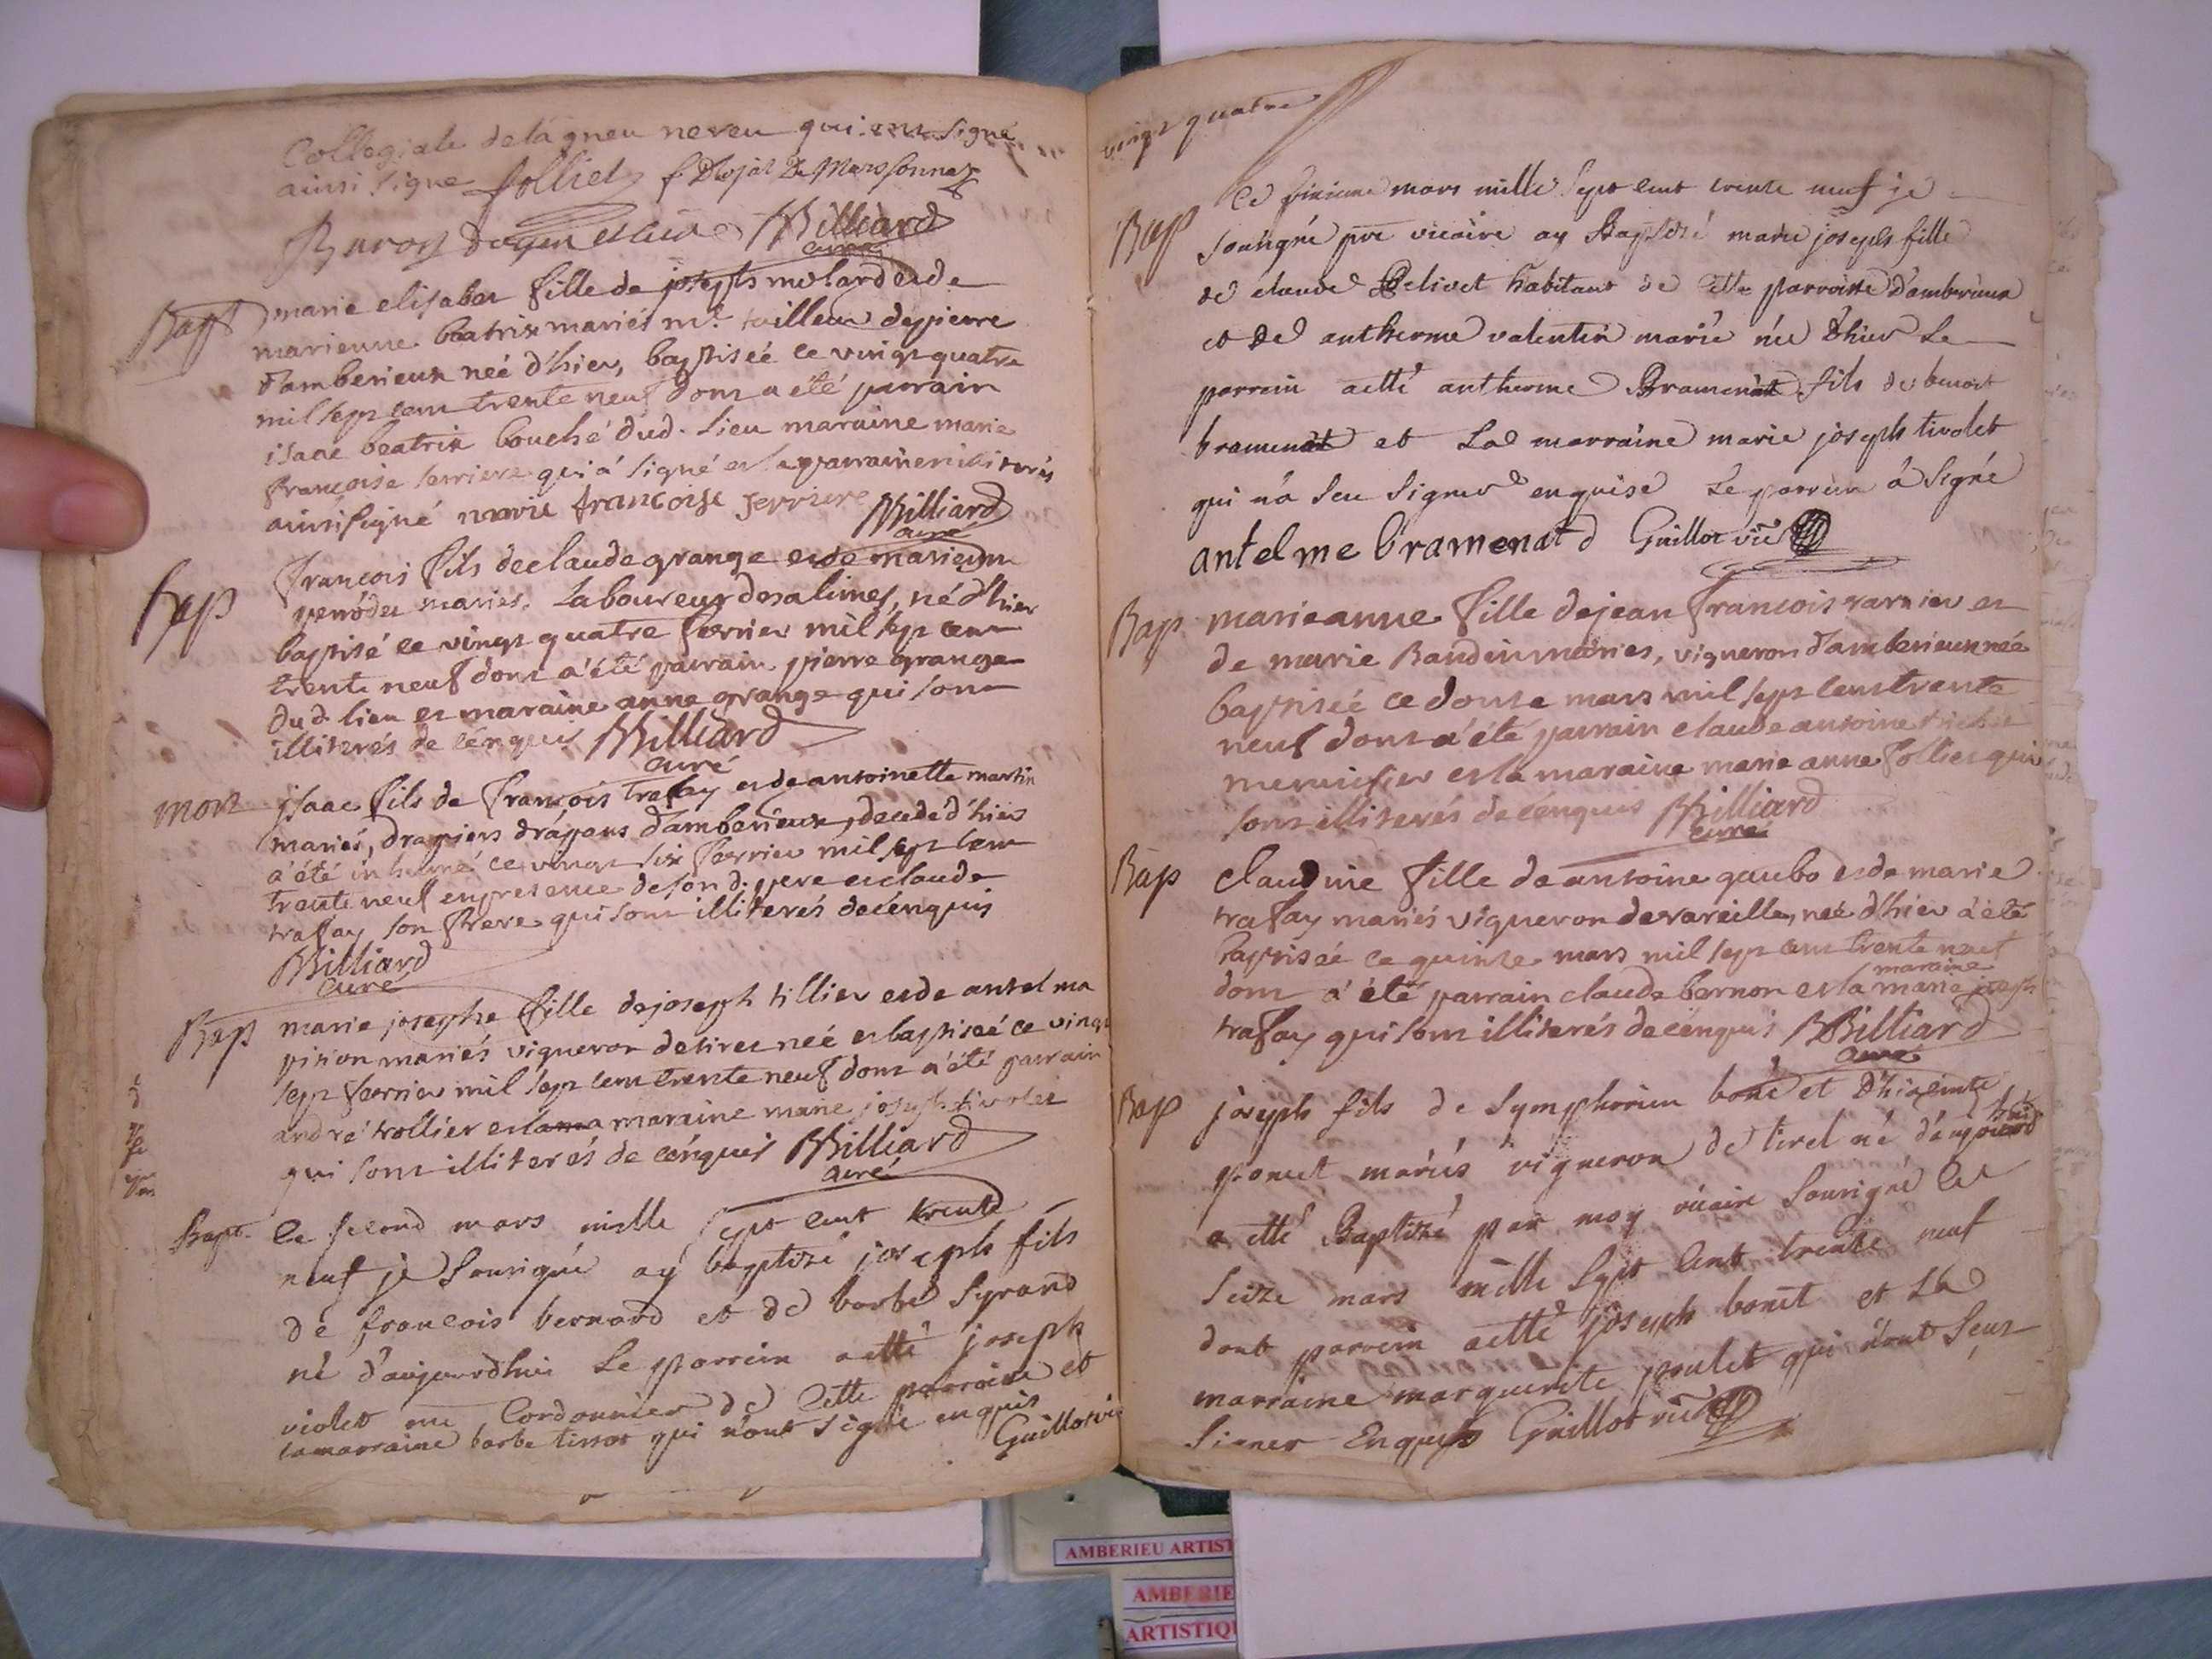 Collegiale de lagneu neveu qui ont signé
ainsi signe Jolliet f. Dujat De Marsonnaz
Buron doyen et curé Billiard
curé
Bapt marie elisabet fille de joseph molard et de
marienne beatrix mariés mr. tailleur de pierre
d'amberieux neé d'hier, baptiseé ce vingt quatre
mil sept cent trente neuf dont a été parrain
isaac beatrix bouché dud. lieu maraine marie
francoise serriere qui a signé et le parrain enilliterés
ainsi signé marie francoise serriere Billiard
curé
bap francois fils de claude grange et de marie
mariés, laboureur des alimes, né d'hier
baptisé ce vingt quatre fevrier mil sept cent
trente neuf dont a été parrain pierre grange
dud. lieu et maraine anne grange qui sont
illiterés de cenquis Billiard
curé
mort isaac fils de francois trafay et de antoinette martin
mariés, drapiers drapans d'amberieux, decedé d'hier
a été inhumé ce vingt six fevrier mil sept cent
trente neuf en presence de son d. pere et claude
trafay son frere qui sont illiterés de cenquis
Billiard
curé
Bap marie josephe fille de joseph tillier et de antelma
pision mariés vigneron de tiret neé et baptiseé ce vingt
sept fevrier mil sept cent trente neuf dont a été parrain
andré trollier et la maraine marie joseph tivolet
qui sont illiterés de cenquis Billiard
curé
Bapt. Ce second mars mille sept cent trente
neuf je sousigné ay baptizé joseph fils
de francois bernard et de barbe syrand
né d'aujourdhui le parrein aetté joseph
violet me cordonnier de cette parroisse et
la marraine barbe tissot qui n'ont signé enquis
Guillot vic
vingt quatre
Ce sixieme mars mille sept cent trente neuf je
Bap sousigné pre vicaire ay Baptizé marie joseph fille
de claude Belivet habitant de cette parroisse d'amberieux
et de antherme valentin marié née d'hier le
parrein aetté antherme Bramenat fils de benoit
bramenat et la marraine marie joseph tivolet
qui n'a seu signer enquise le parrein a signé
antelme bramenat d Guillot vic
Bap marieanne fille de jean francois varnier et
de marie Baudin mariés, vigneron d'amberieux neé
baptiseé ce douze mars mil sept cent trente
neuf dont a été parrain claude antoine
menuisier et la maraine marie anne Jollier qui
sont illiterés de cenquis Billiard
curé
Bap claudine fille de antoine gaubo et de marie
trafay mariés vigneron de vareilles, neé d'hier a été
baptiseé ce quinze mars mil sept cent trente neuf
maraine
dont a été parrain claude bernon et la marie joseph
trafay qui sont illiterés de cenquis Billiard
curé
Bap joseph fils de symphorien bonet et d'hiacinte
ponet mariés vigneron de tiret né d'aujourdhui
a etté Baptizé par moy vicaire sousigné ce
seize mars mille sept cent trente neuf
dont parrein aetté joseph bonet et la
marraine marguerite poulet qui n'ont sçeu
signer Enquis Guillot vic
AMBERIEU ARTIST
AMBERIE
ARTISTIQ